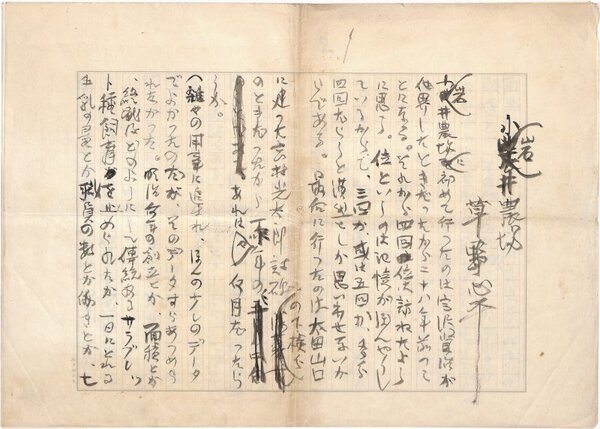 小岩井農場
草野心平
小岩井農場に初めて行ったのは宮沢賢治が
他界したときだったから二十八年前のこ
とになる。それから四回位訪ねたよう
に思う。位といふのは記憶があんやりし
ているからで、三四か或は五回か、まあ
四回ならうと漠然としか思い出せないか
らである。最后に行ったのは太田山口
に建った高村光太郎詩碑の
のときだったから
あれは何月だったら
うか。
雑廿の用事に追はれ、ほんの少しのデータ
でよかったのだが、そのデータすらあつめら
れなかった。明治何年の創立とか、面積とか
、経営はどのようにして伝統あるサラブレッ
ト種飼育を止められたか、一日にとれる
牛乳の量とか職員の数とか働きとか、七